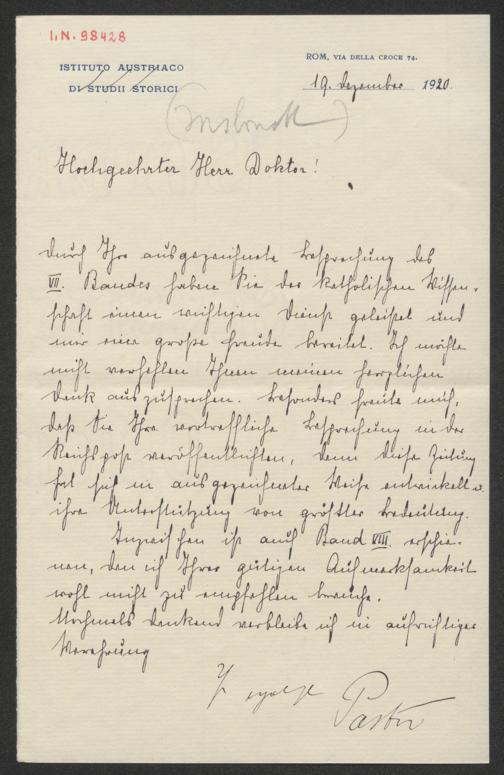 I.N. 98428
ISTITUTO AUSTRIACO
DI STUDII STORICI
ROM, VIA DELLA CROCE 74.
19. Dezember 1920
(Innsbruck)
Hochgeehrter Herr Doktor!
Durch Ihre ausgezeichnete Besprechung des
VII. Bandes haben Sie der katholischen Wissen-
schaft einen wichtigen Dienst geleistet und
mir eine große Freude bereitet. Ich möchte
nicht verfehlen Ihnen meinen herzlichen
Dank auszusprechen. Besonders freute mich,
daß Sie Ihre vortreffliche Besprechung in der
Reichspost veröffentlichten, denn diese Zeitung
hat sich in ausgezeichneter Weise entwickelt u.
ihre Unterstützung von größter Bedeutung.
Inzwischen ist auch Band VIII. erschie-
nen, den ich Ihrer gütigen Aufmerksamkeit
wohl nicht zu empfehlen brauche.
Nochmals dankend verbleibe ich in aufrichtiger
Verehrung
Pastor